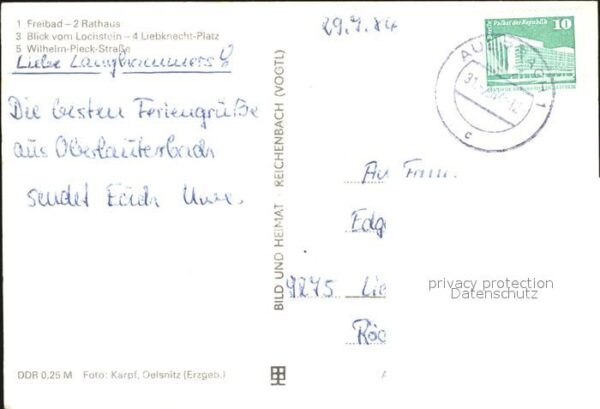 1 Freibad – 2 Rathaus
3 Blick vom Lochstein – 4 Liebknecht-Platz
5 Wilhelm-Pieck-Straße
Liebe
Die besten Feriengrüße
aus Oberlauterbach
sendet Euch
DDR 0,25 M Foto: Karpf, Oelsnitz (Erzgeb.)
BILD UND HEIMAT REICHENBACH (VOGTL)
29.7.84
Palast der Republik 10
An Fam.
Edg
9275 Lic
privacy protection
Datenschutz